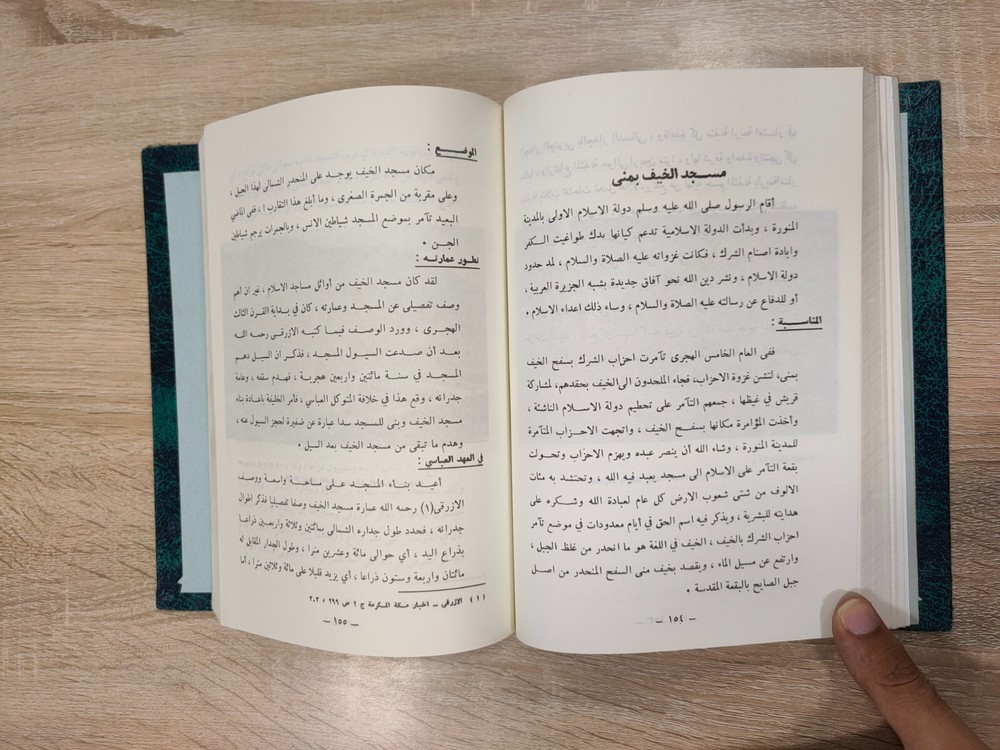 مسجد الخيف بمنى
أقام الرسول صلى الله عليه وسلم دولة الاسلام الاولى بالمدينة
المنورة ، وبدأت الدولة الاسلامية تدعم كيانها بدك طواغيت الكفر
وابادة اصنام الشرك ، فكانت غزواته عليه الصلاة والسلام ، لمد حدود
دولة الاسلام ، ونشر دين الله نحو آفاق جديدة بشبه الجزيرة العربية ،
أو للدفاع عن رسالته عليه الصلاة والسلام ، وساء ذلك اعداء الاسلام .
المناسبة :
ففى العام الخامس الهجرى تآمرت احزاب الشرك بسفح الخيف
بمنى، لتشن غزوة الاحزاب، فجاء الملحدون الى الخيف بحقدهم، لمشاركة
قريش في غيظها ، جمعهم التآمر على تحطيم دولة الاسلام الناشئة ،
وأخذت المؤامرة مكانها بسفح الخيف ، واتجهت الاحزاب المتآمرة
للمدينة المنورة ، وشاء الله أن ينصر عبده ويهزم الاحزاب وتحولت
بقعة التآمر على الاسلام الى مسجد يعبد فيه الله ، وتحتشد به مئات
الالوف من شتى شعوب الارض كل عام لعبادة الله وشكره على
هدايته للبشرية ، ويذكر فيه اسم الحق في أيام معدودات في موضع تآمر
احزاب الشرك بالخيف ، الخيف في اللغة هو ما انحدر من غلظ الجبل ،
وارتفع عن مسيل الماء ، ويقصد بخيف منى السفح المنحدر من اصل
جبل الصابح بالبقعة المقدسة .
— ١٥٤ —
الوضع :
مكان مسجد الخيف يوجد على المنحدر الشمالى لهذا الجبل ،
وعلى مقربة من الجمرة الصغرى ، وما أبلغ هذا التقارب ! ، ففى الماضي
البعيد تآمر بموضع المسجد شياطين الانس ، وبالجمرات يرجم شياطين
الجن .
تطور عمارته :
لقد كان مسجد الخيف من أوائل مساجد الاسلام ، غير ان اهم
وصف تفصيلى عن المسجد وعمارته ، كان في بداية القرن الثالث
الهجرى ، وورد الوصف فيما كتبه الازرقى رحمه الله
بعد أن صدعت السيول المسجد ، فذكر ان السيل دهم
المسجد في سنة مائتين واربعين هجرية ، فهدم سقفه ، وعامة
جدرانه ، وقع هذا في خلافة المتوكل العباسي ، فأمر الخليفة باعادة بناء
مسجد الخيف وبنى للمسجد سدا عبارة عن ضفيرة لحجز السيول عنه ،
وهدم ما تبقى من مسجد الخيف بعد السيل .
في العهد العباسي :
أعيد بناء المسجد على مساحة واسعة ووصف
الازرقى(١) رحمه الله عمارة مسجد الخيف وصفا تفصيليا فذكر اطوال
جدرانه ، فحدد طول جداره الشمالى بمائتين وثلاثة واربعين ذراعا
بذراع اليد ، أي حوالى مائة وعشرين مترا ، وطول الجدار المقابل له
مائتان واربعة وستون ذراعا ، أي يزيد قليلا على مائة وثلاثين مترا ، أما
(١) الازرقى – اخبار مكة المكرمة ج ٢ ص ٢٩٩ ، ٣٠٢
— ١٥٥ —